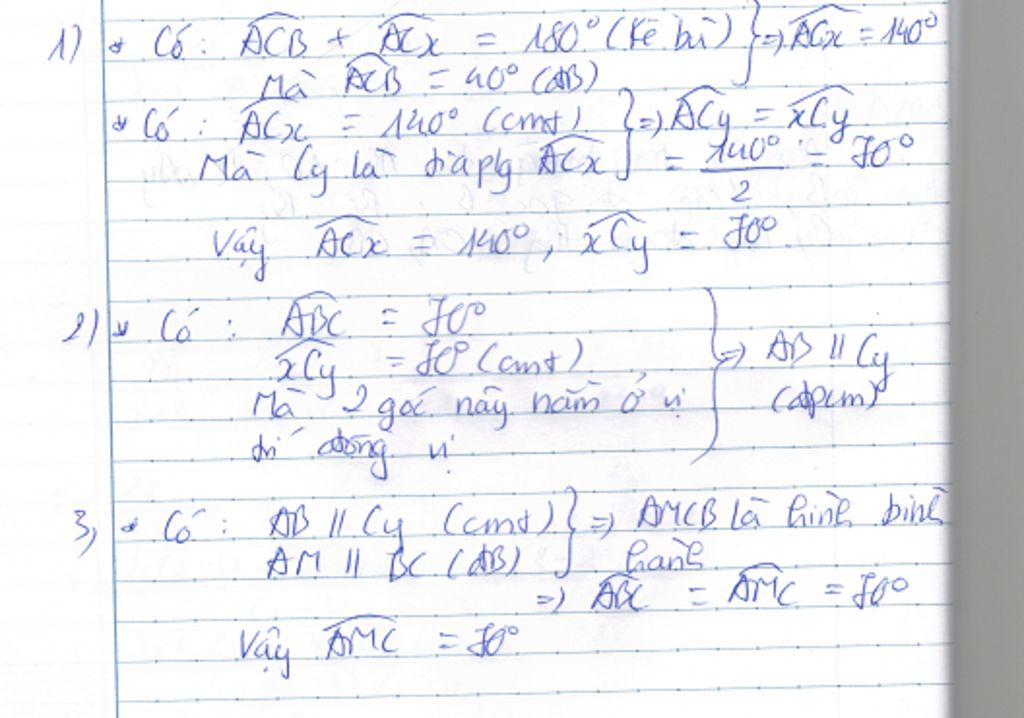 1) * Có : ACB + ACx = 180° (kề bù) } => ACx = 140°
Mà ACB = 40° (đB)
* Có : ACx = 140° (cmt) } => ACy = xCy
Mà Cy là tia plg ACx = 140°/2 = 70°
Vậy ACx = 140°, xCy = 70°
2) * Có : ABC = 70°
xCy = 70° (cmt) } => AB // Cy
Mà 2 góc này nằm ở vị (đpcm)
trí đồng vị
3, * Có : AB // Cy (cmt) } => AMCB là hình bình
AM // BC (đB) hành
=> ABC = AMC = 70°
Vậy AMC = 70°